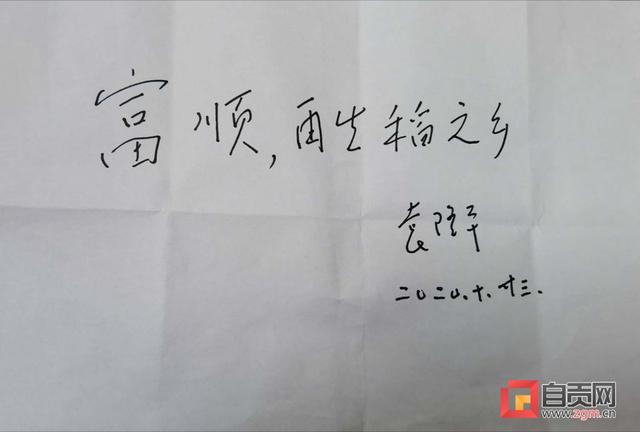 富顺,再生稻之乡
袁隆平
二〇二〇.十.廿三.
自贡网
www.zgm.cn